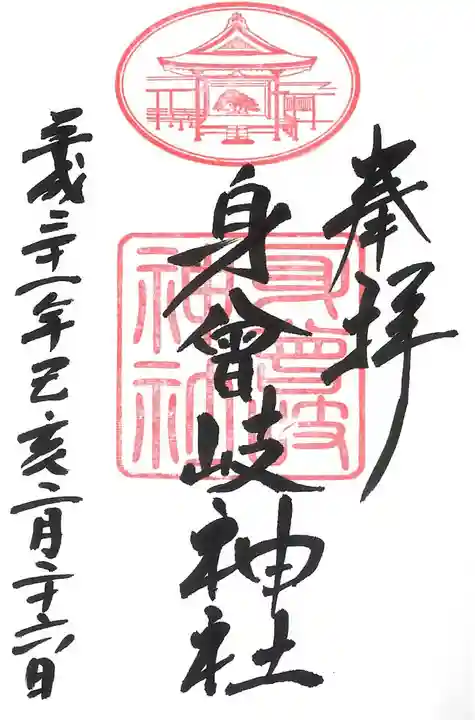 奉拝
身曾岐神社
身曾岐神社
平成三十一年己亥二月二十六日